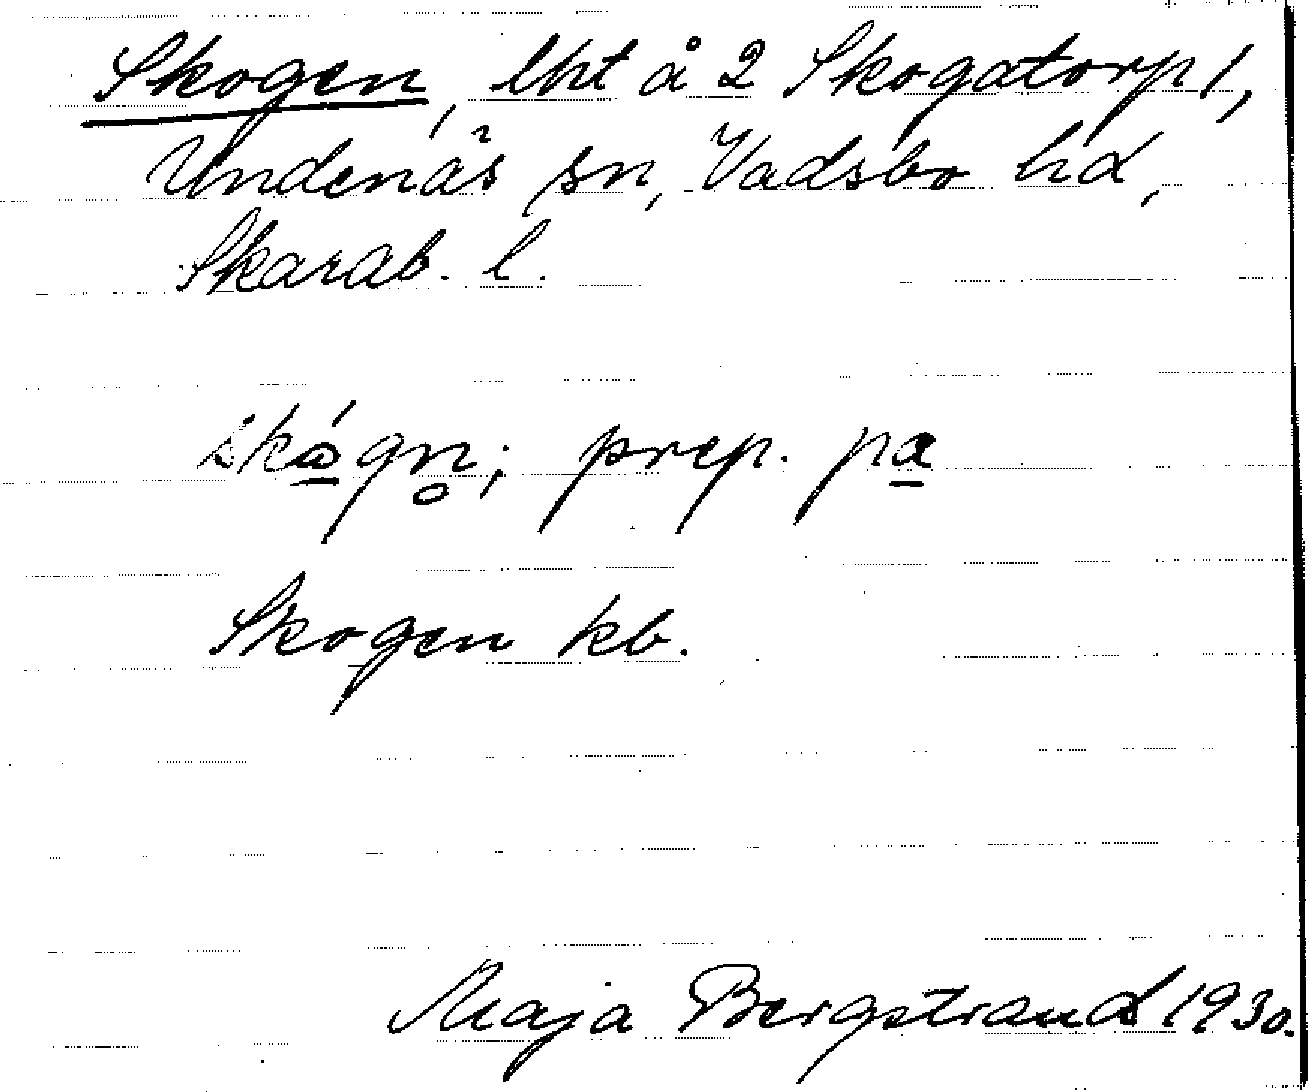 Skogen, lht å 2 Skogatorp 1,
Undenäs sn, Vadsbo hd,
Skarab. l.
skógn̥; prep. pa
Skogen kb.
Maja Bergstrand 1930.